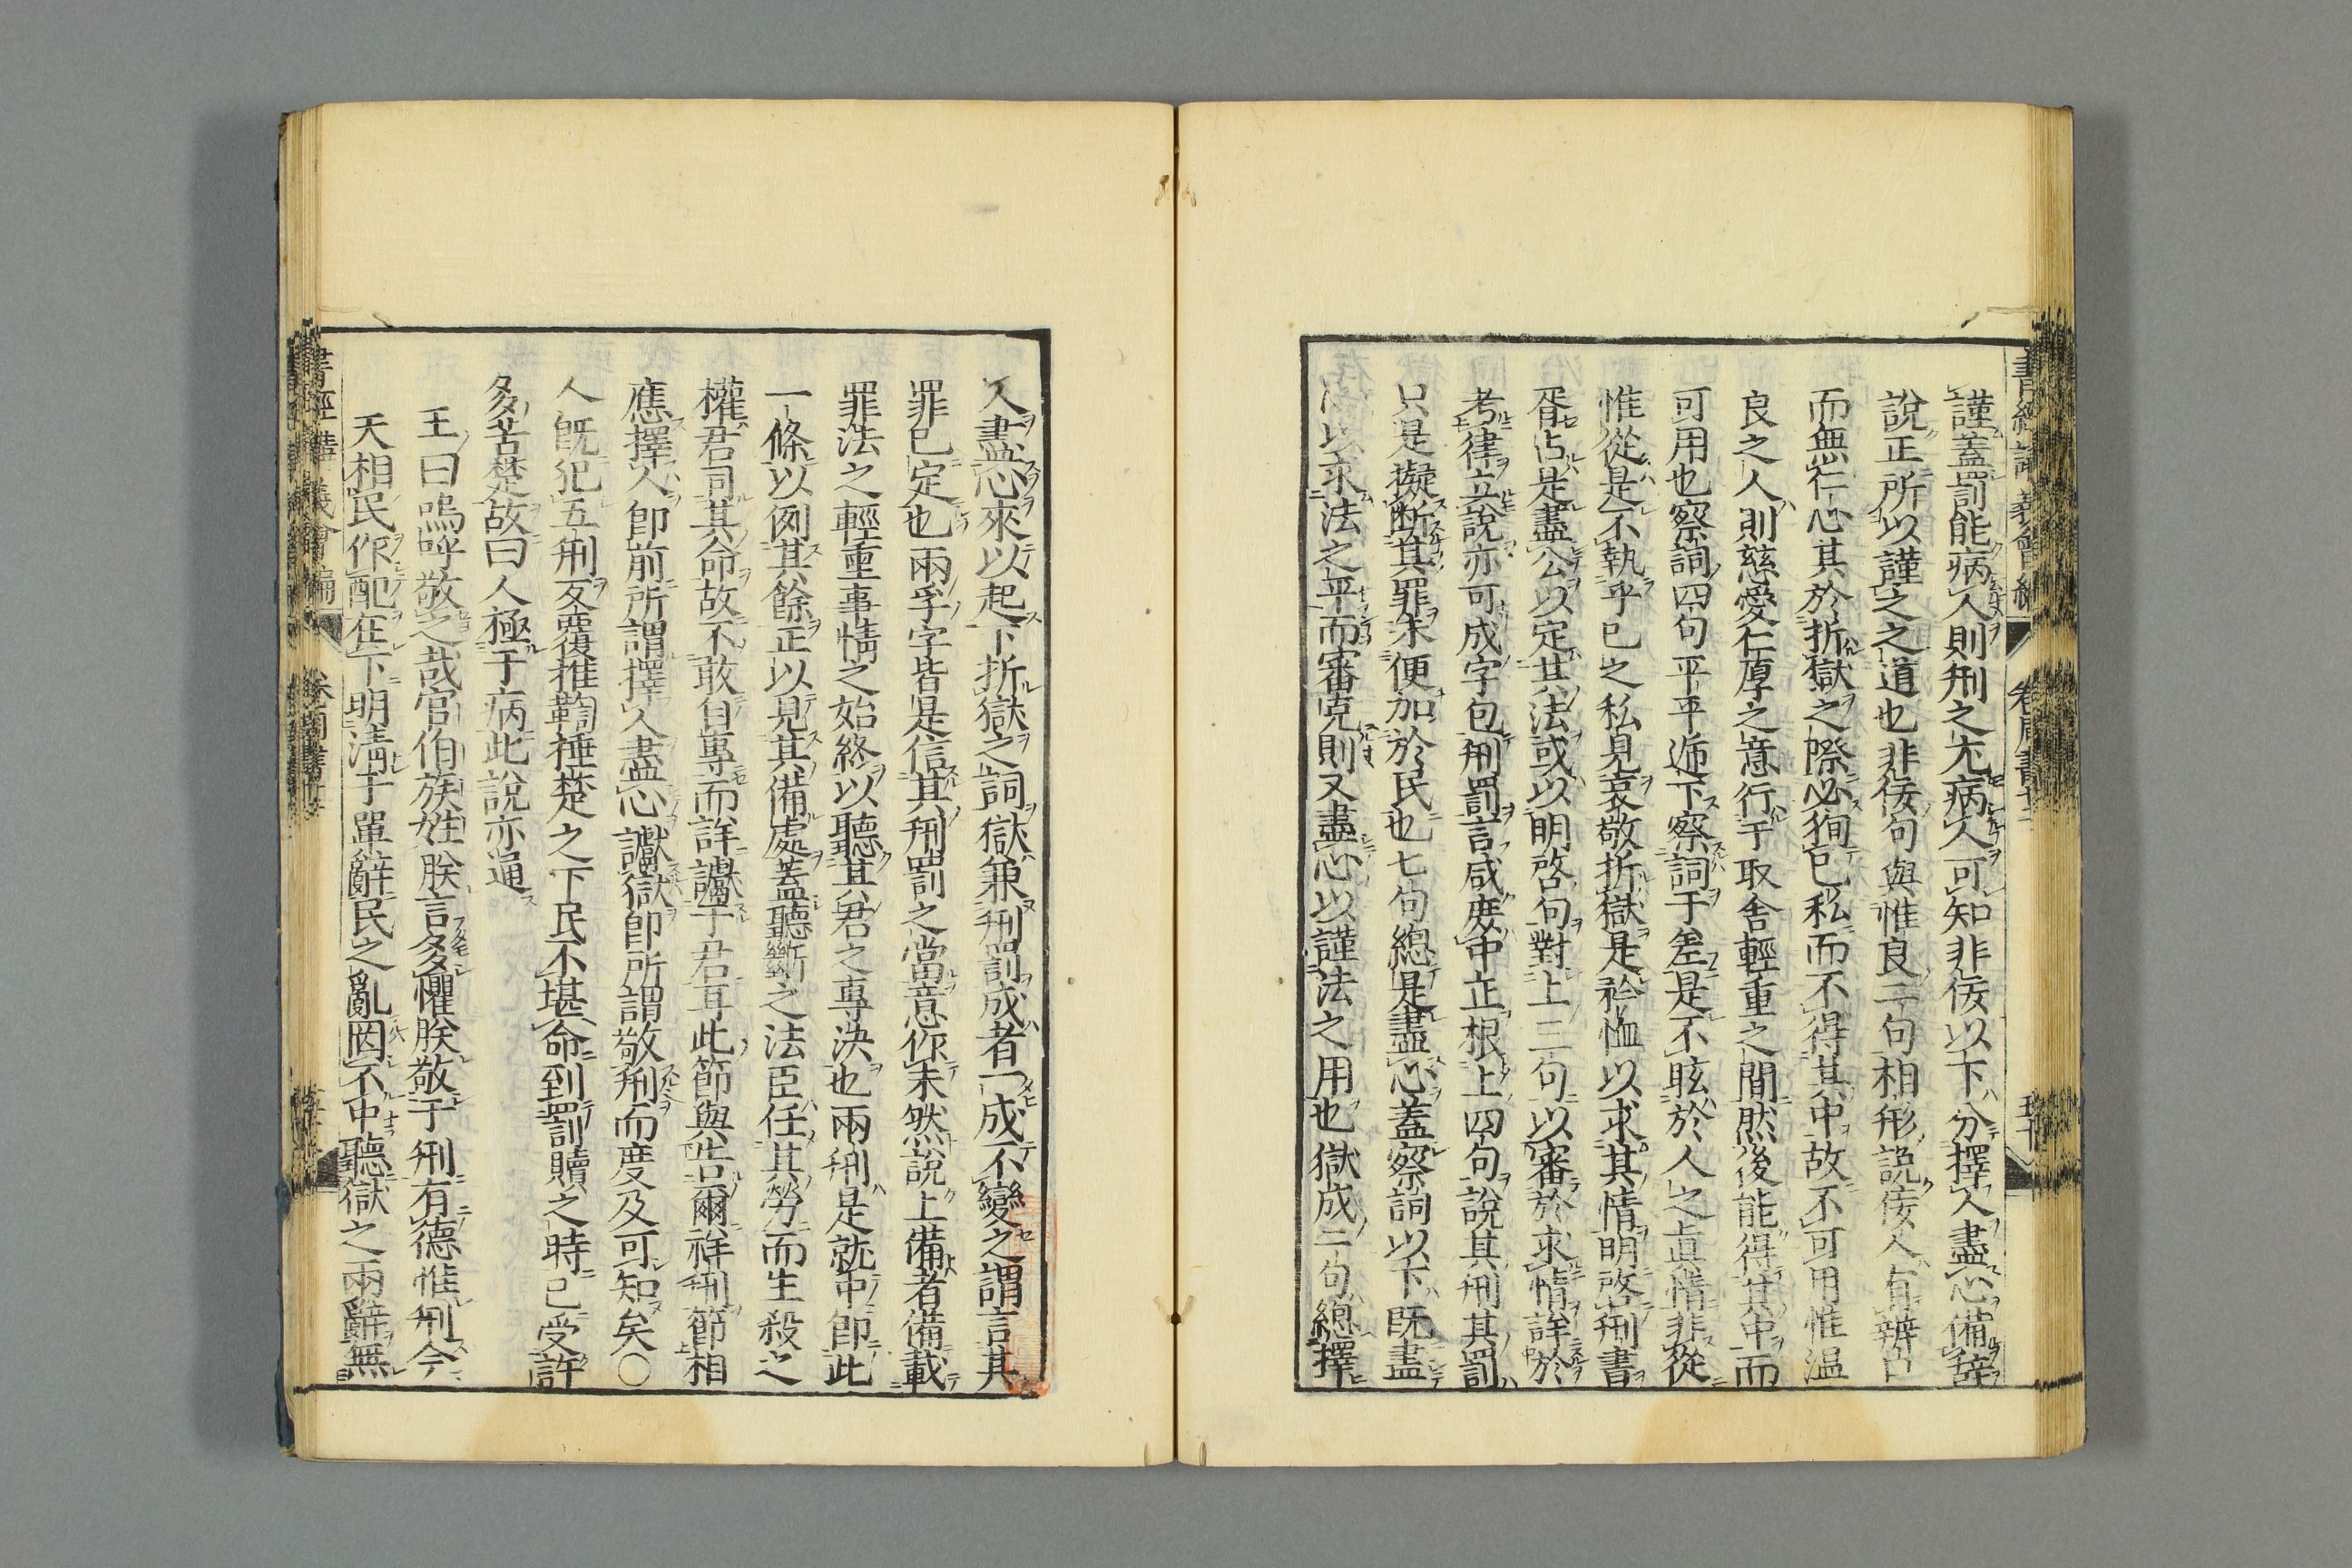 謹蓋罰能病人則刑之尤病人可知非佞以下分擇人盡心備辭
說正所以謹之之道也非佞句與惟良二句相形說佞人有辨口
而無仁心其於折獄之際必狥已私而不得其中故不可用惟温
良之人則慈愛仁厚之意行于取舍輕重之間然後能得其中而
可用也察詞四句平平遞下察詞于差是不眩於人之眞情非從
惟從是不執乎已之私見哀敬折獄是矜恤以求其情明啓刑書
胥占是盡公以定其法或以明啓句對上二句以審於求情詳於
考律立說亦可咸字包刑罰言咸庶中正根上四句說其刑其罰
只是擬斷其罪未便加於民也七句總是盡心蓋察詞以下既盡
以求法之平而審克則又盡心以謹法之用也獄成二句總擇
人盡心來以起下折獄之詞獄兼刑罰成者一成不變之謂言其
罪已定也兩孚字皆是信其刑罰之當意你未然說上備者備載
罪法之輕重事情之始終以聽其君之專决也兩刑是就中即此
一條以例其餘正以見其備處蓋聽斷之法臣任其勞而生殺之
權君司其命故不敢自專而詳讞于君耳此節與告爾祥刑節相
應擇人即前所謂擇人盡心讞獄即所謂敬刑而度及可知矣○
人既犯五刑反覆推鞫捶楚之下民不堪命到罰贖之時已受許
多苦楚故曰人極于病此說亦通
王曰嗚呼敬之哉官伯族姓朕言多懼朕敬于刑有德惟刑今
天相民作配在下明淸于單辭民之亂罔不中聽獄之兩辭無
書經講義會編 卷周書十二